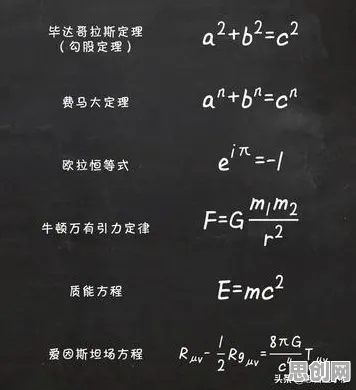 毕达哥拉斯定理
（勾股定理）
a²+b²=c²
费马大定理
aⁿ+bⁿ=cⁿ
欧拉恒等式
e^{iπ}=-1
牛顿万有引力定律
F=G\frac{m₁m₂}{r²}
质能方程
E=mc²
爱因斯坦场方程
R_{μν}-\frac{1}{2}Rg_{μν}=\frac{8πG}{c⁴}T_{μν}
思创网